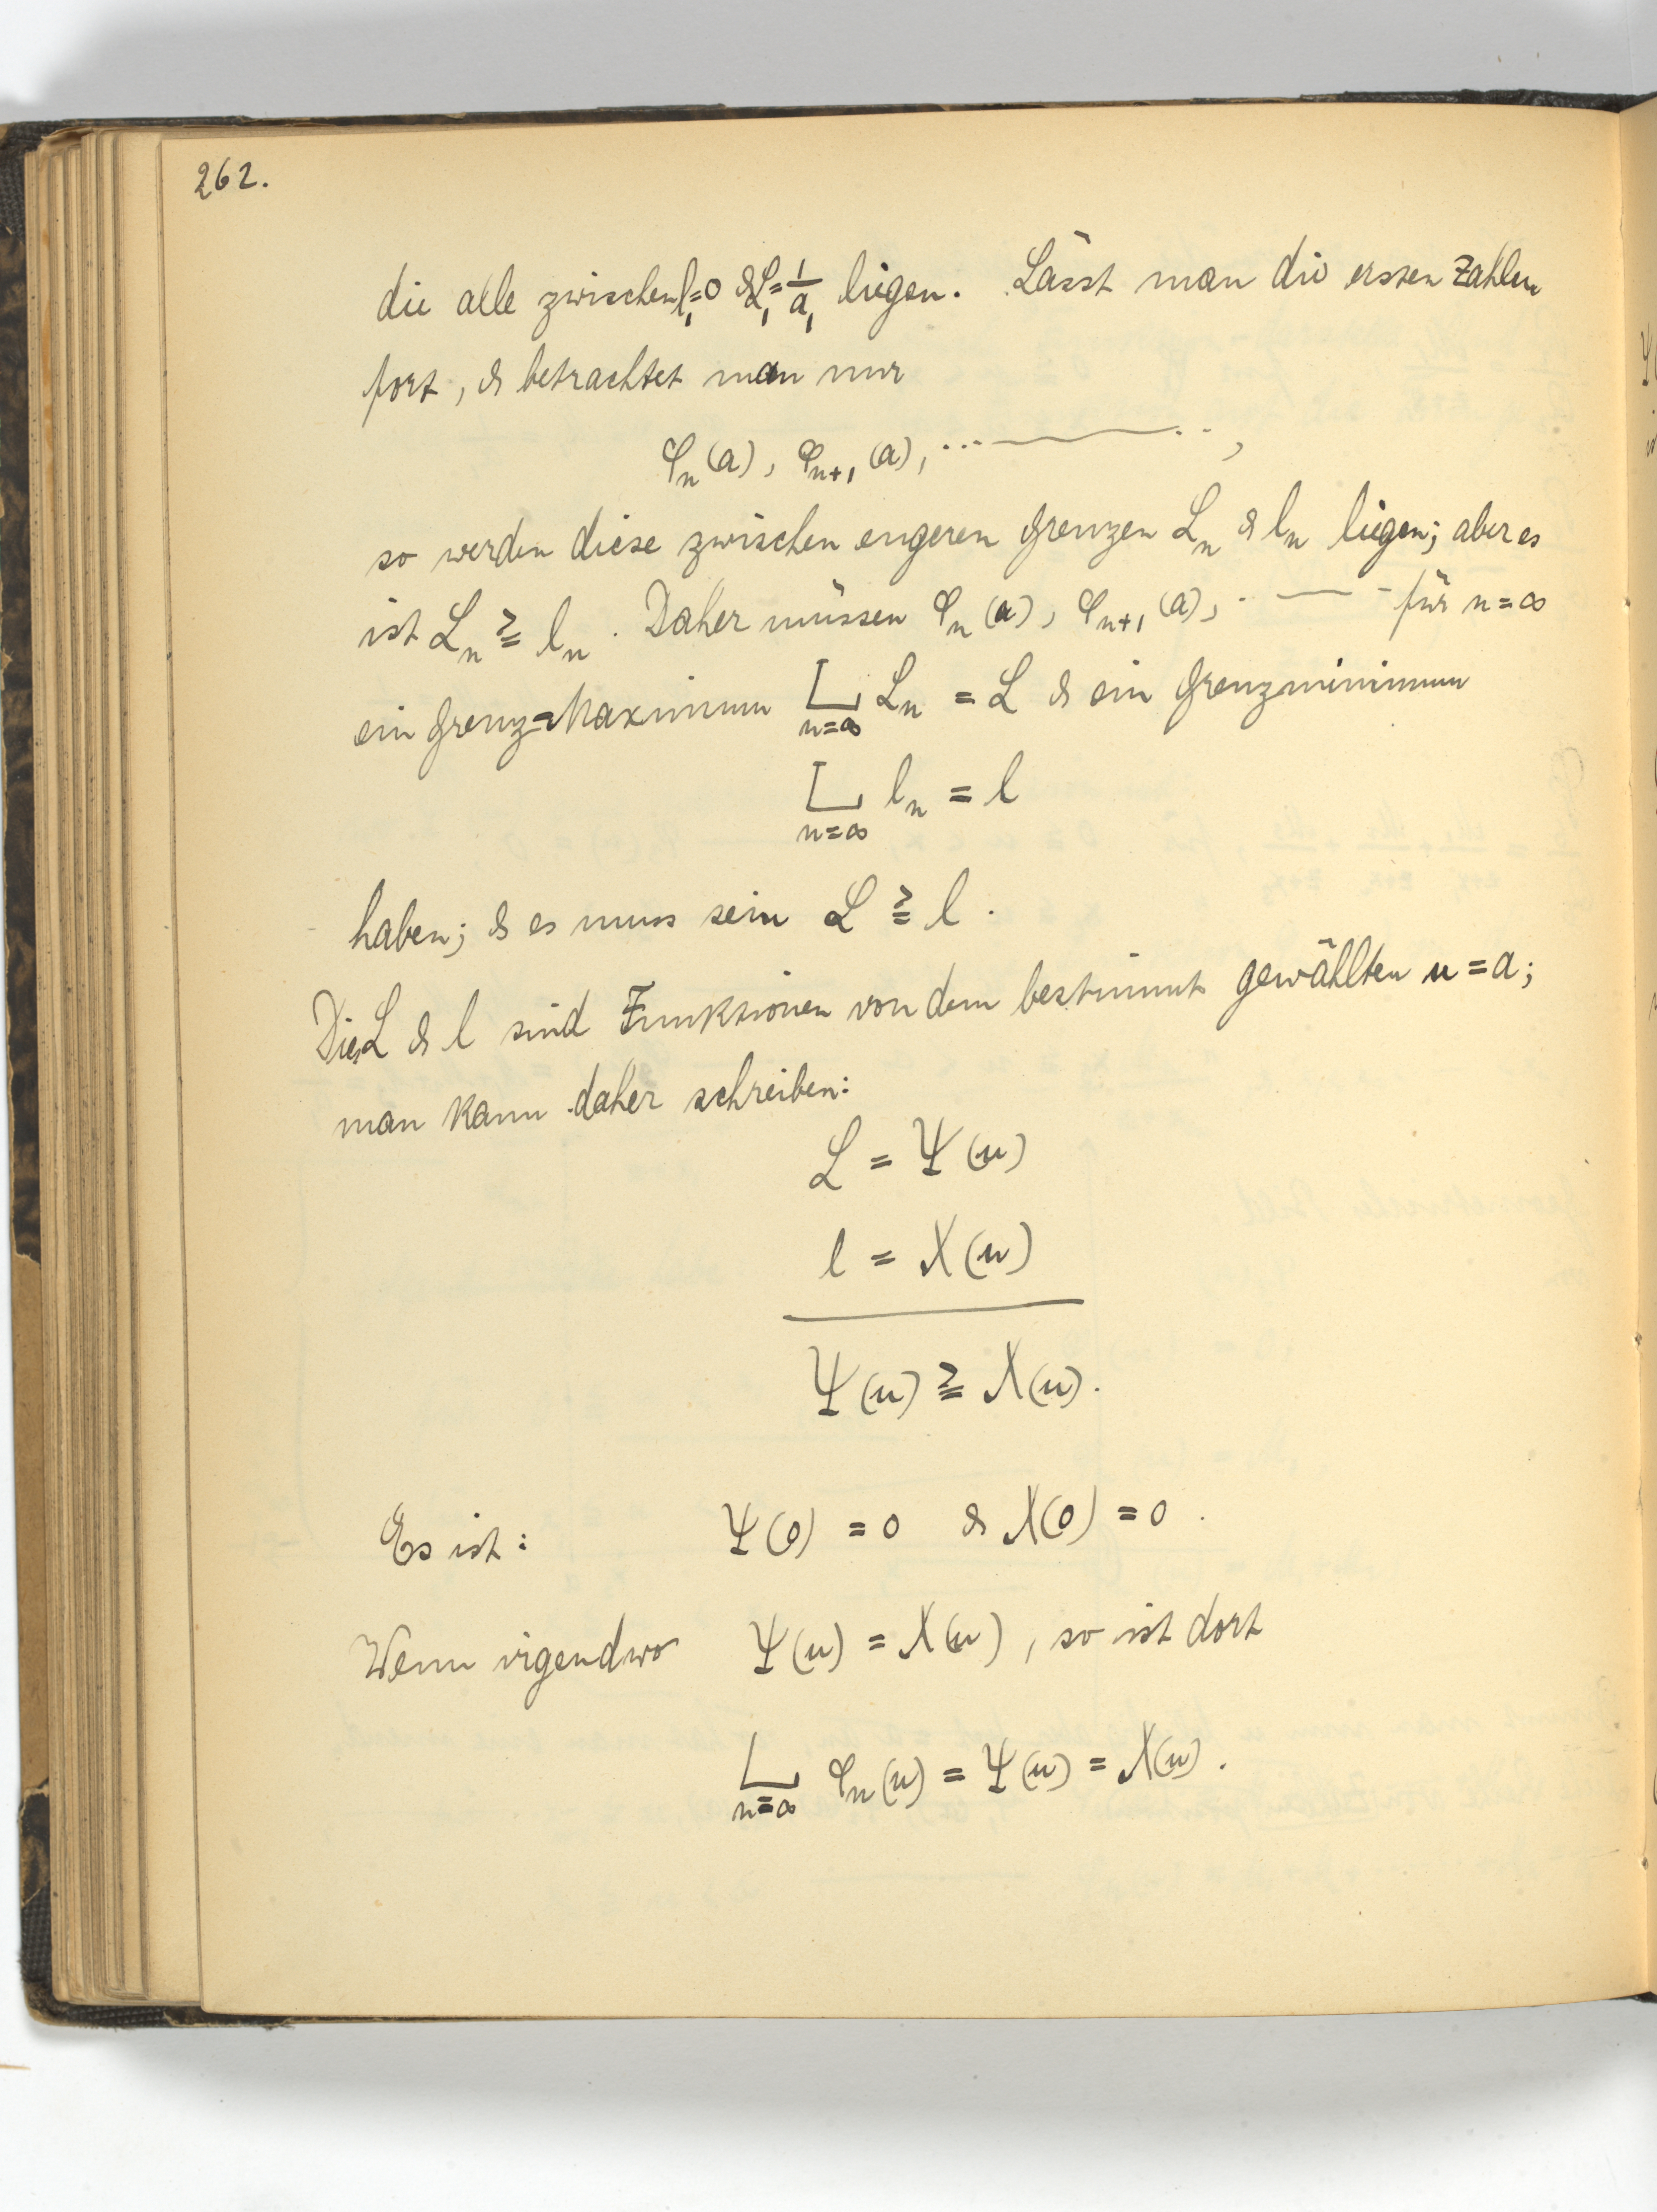 262.
die alle zwischen l₁=0 & L₁=1/a₁ liegen. Lässt man die ersten Zahlen
fort, & betrachtet man nur
φₙ(a), φₙ₊₁(a), ...——..,
so werden diese zwischen engeren Grenzen Lₙ & lₙ liegen; aber es
ist Lₙ ≧ lₙ. Daher müssen φₙ(a), φₙ₊₁(a), .—— - für n=∞
ein Grenz=Maximum L Lₙ = L & ein Grenzminimum
n=∞
L lₙ = l
n=∞
haben; & es muss sein L ≧ l.
Die L & l sind Funktionen von dem bestimmt gewählten u=a;
man kann daher schreiben:
L = Ψ(u)
l = χ(u)
Ψ(u) ≧ χ(u).
Es ist: Ψ(0) = 0 & χ(0) = 0.
Wenn irgendwo Ψ(u) = χ(u), so ist dort
L φₙ(u) = Ψ(u) = χ(u).
n=∞